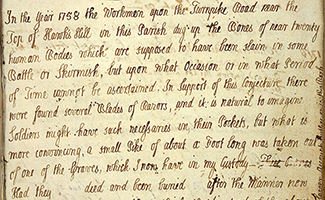 In the Year 1758 the Workmen upon the Turnpike Road near the
Top of Hawks Hill in this Parish dug up the Bones of near twenty
human Bodies which are supposed to have been slain in some
Battle or Skirmish, but upon what Occasion or in what Period
of Time cannot be ascertained. In Support of this Conjecture there
were found several Blades of Razors, and it is natural to imagine
Soldiers might have such necessaries in their Pockets, but what is
more convincing, a small Pike of about a Foot long was taken out
of one of the Graves, which I now have in my Custody
Had they died and been buried after the Manner now